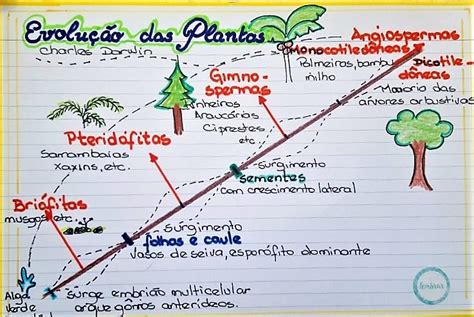 Evolução das Plantas
Charles Darwin
Angiospermas
Monocotiledôneas
Palmeiros, bambu
milho
Dicotile-
dôneas
Maioria das
árvores arbustivas
Gimno-
spermas
Pinheiros
Araucárias
Ciprestes
etc
Pteridófitas
Samambaias
xaxins, etc.
Surgimento
sementes
com crescimento lateral
Briófitas
musgos, etc
Surgimento
folhas e caule
Vasos de seiva, esporófito dominante
Alga
Verde
Surge embrião multicelular
arquegônios anterídeos.